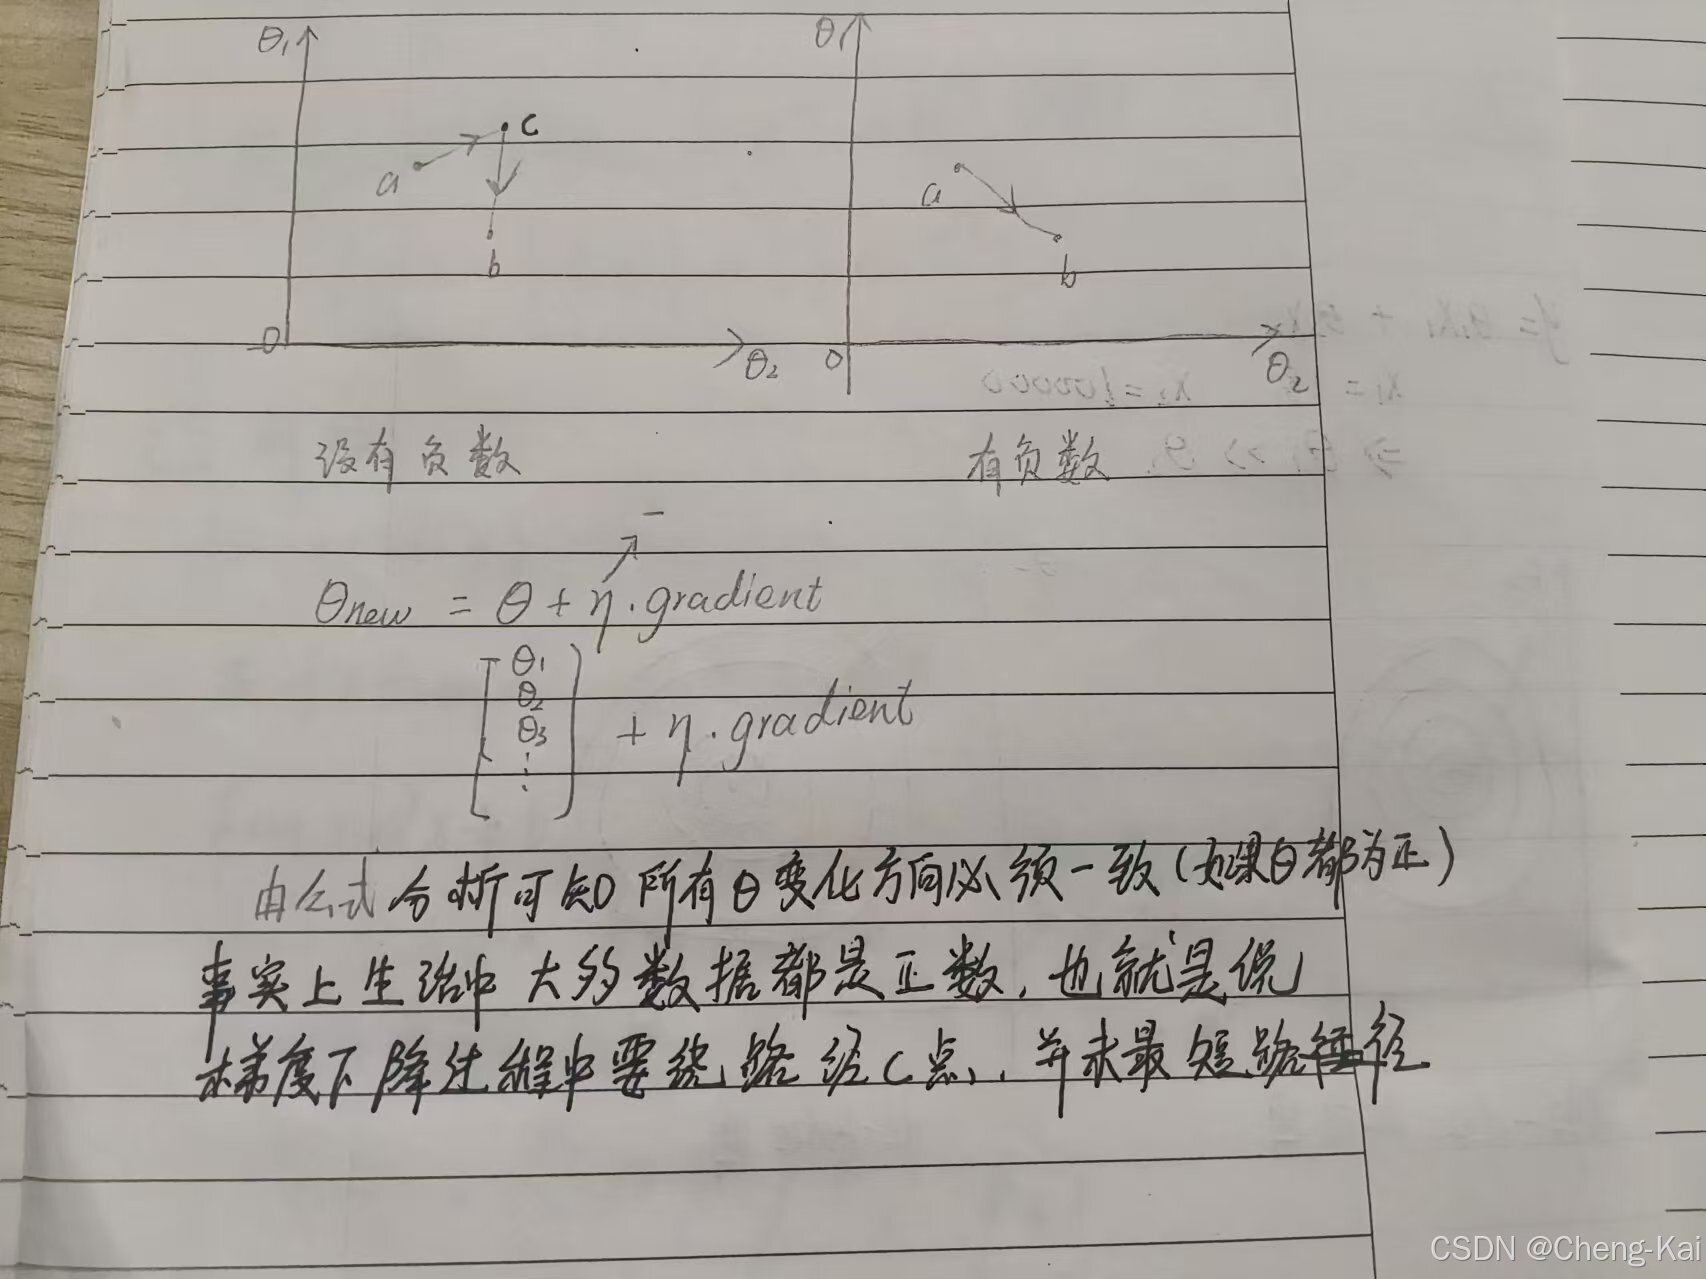 θ₁ θ₁
c
a a
b b
0 θ₂ 0 θ₂
没有负数 有负数
−
θnew = θ + η · gradient
θ₁
θ₂
θ₃
⋮
+ η · gradient
由公式分析可知 所有θ变化方向必须一致(如果θ都为正)
事实上生活中 大多数据都是正数,也就是说
梯度下降过程中要绕路经C点,并未最短路径
CSDN @Cheng-Kai